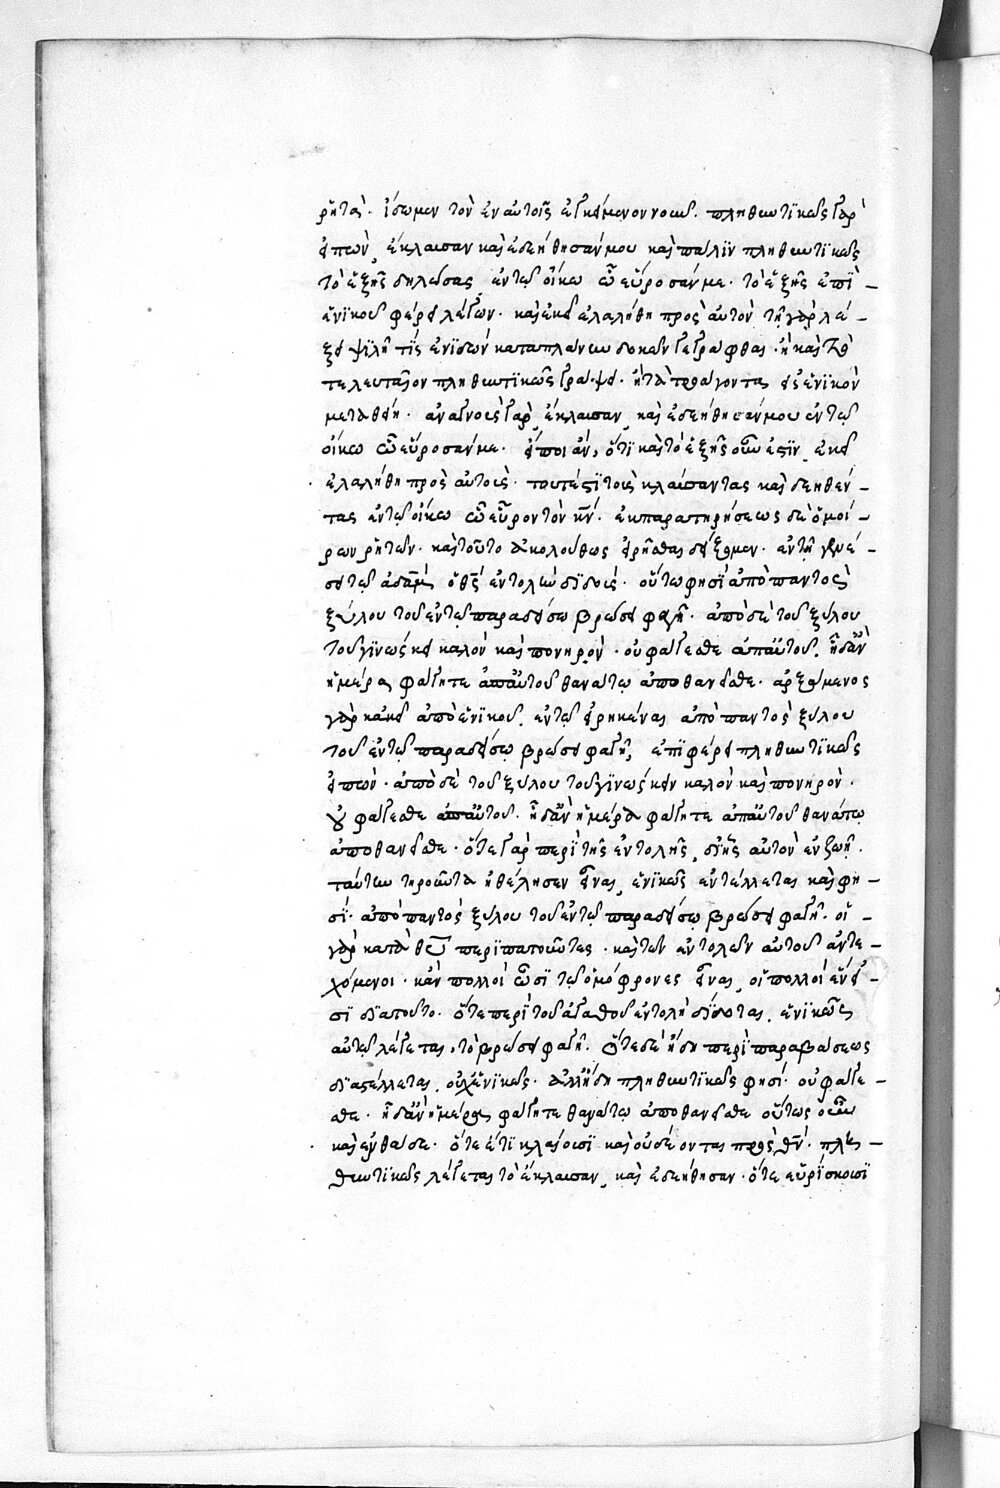 ρητὰ· ἴσωμεν τὸν ἐν αὐτοῖς ἐγκείμενον νοῦν. πληθυντικῶς γὰρ
εἰπὼν, ἔκλαυσαν καὶ ἐδεήθησάν μου καὶ πάλιν πληθυντικῶς
τὸ ἑξῆς δηλώσας ἐν τῷ οἴκῳ ὦν εὕροσάν με· τὸ ἑξῆς ἐπὶ
ἑνικοῦ φέρει λέγων· καὶ ἐκεῖ ἐλαλήθη πρὸς αὐτόν τῇ γὰρ λέ-
ξει ψιλῇ τίς ἐνιδὼν καταπλανῶν δοκεῖν γεγράφθαι· ἢ καὶ τὸ
τελευταῖον πληθυντικῶς γράψει· ἢ τὰ προάγοντα εἰς ἑνικὸν
μεταθείη· ἀναγνοὺς γὰρ, ἔκλαυσαν, καὶ ἐδεήθησάν μου ἐν τῷ
οἴκῳ ὦν εὕροσάν με· εἴποι ἂν, ὅτι καὶ τὸ ἑξῆς οὖν ἐστὶν, ἐκεῖ
ἐλαλήθη πρὸς αὐτοὺς· τουτέστι τοὺς κλαύσαντας καὶ δεηθέν-
τας ἐν τῷ οἴκῳ ὦν εὗρον τὸν κν̅· ἐκ παρατηρήσεως δὲ ὁμοί-
ρων ρητῶν· καὶ τοῦτο ἀκολούθως εἰρῆσθαι δείξωμεν· ἐν τῇ γενέ-
σει τῷ ἀδὰμ ὁ θς̅ ἐντολὴν δίδοις· οὕτω φησὶ ἀπὸ παντὸς
ξύλου τοῦ ἐν τῷ παραδείσῳ βρώσει φαγῇ· ἀπὸ δὲ τοῦ ξύλου
τοῦ γινώσκει καλὸν καὶ πονηρὸν· οὐ φάγεσθε ἀπ' αὐτοῦ. ᾗ δ' ἂν
ἡμέρᾳ φάγητε ἀπ' αὐτοῦ θανάτῳ ἀποθανεῖσθε· ἀρξάμενος
γὰρ κἀκεῖ ἀπὸ ἑνικοῦ, ἐν τῷ εἰρηκέναι ἀπὸ παντὸς ξύλου
τοῦ ἐν τῷ παραδείσῳ βρώσει φαγῇ, ἐπιφέρει πληθυντικῶς
εἰπὼν· ἀπὸ δὲ τοῦ ξύλου τοῦ γινώσκειν καλὸν καὶ πονηρὸν·
οὐ φάγεσθε ἀπ' αὐτοῦ. ᾗ δ' ἂν ἡμέρᾳ φάγητε ἀπ' αὐτοῦ θανάτῳ
ἀποθανεῖσθε· ὅτε γὰρ περὶ τῆς ἐντολῆς, αὐτὸν ἐν ζωῇ.
ταύτην τηροῦντα ἠθέλησεν εἶναι, ἑνικῶς ἐντέλλεται καὶ φη-
σὶ· ἀπὸ παντὸς ξύλου τοῦ ἐν τῷ παραδείσῳ βρώσει φαγῇ· οἱ-
γὰρ κατὰ θν̅ περιπατοῦντες· καὶ τῶν ἐντολῶν αὐτοῦ ἀντε-
χόμενοι· κἂν πολλοὶ ὦσι τῷ ὁμόφρονες εἶναι, οἱ πολλοὶ ἕν εἰ-
σι διὰ τοῦτο· ὅτε περὶ τοῦ ἀγαθοῦ ἐντολὴ δίδοται, ἑνικῶς
αὐτῷ λέγεται, τὸ βρώσει φαγῇ. ὅτε δὲ ἤδη περὶ παραβάσεως
διαστέλλεται, οὐχ' ἑνικῶς· ἀλλ' ἤδη πληθυντικῶς φησὶ· οὐ φάγε-
σθε· ᾗ δ' ἂν ἡμέρᾳ φάγητε θανάτῳ ἀποθανεῖσθε οὕτως οὖν
καὶ ἐνθάδε· ὅτε ἔτι κλαίουσι καὶ οὐ δέονται πρὸς θν̅· πλη-
θυντικῶς λέγεται τὸ ἔκλαυσαν, καὶ ἐδεήθησαν· ὅτε εὑρίσκουσι